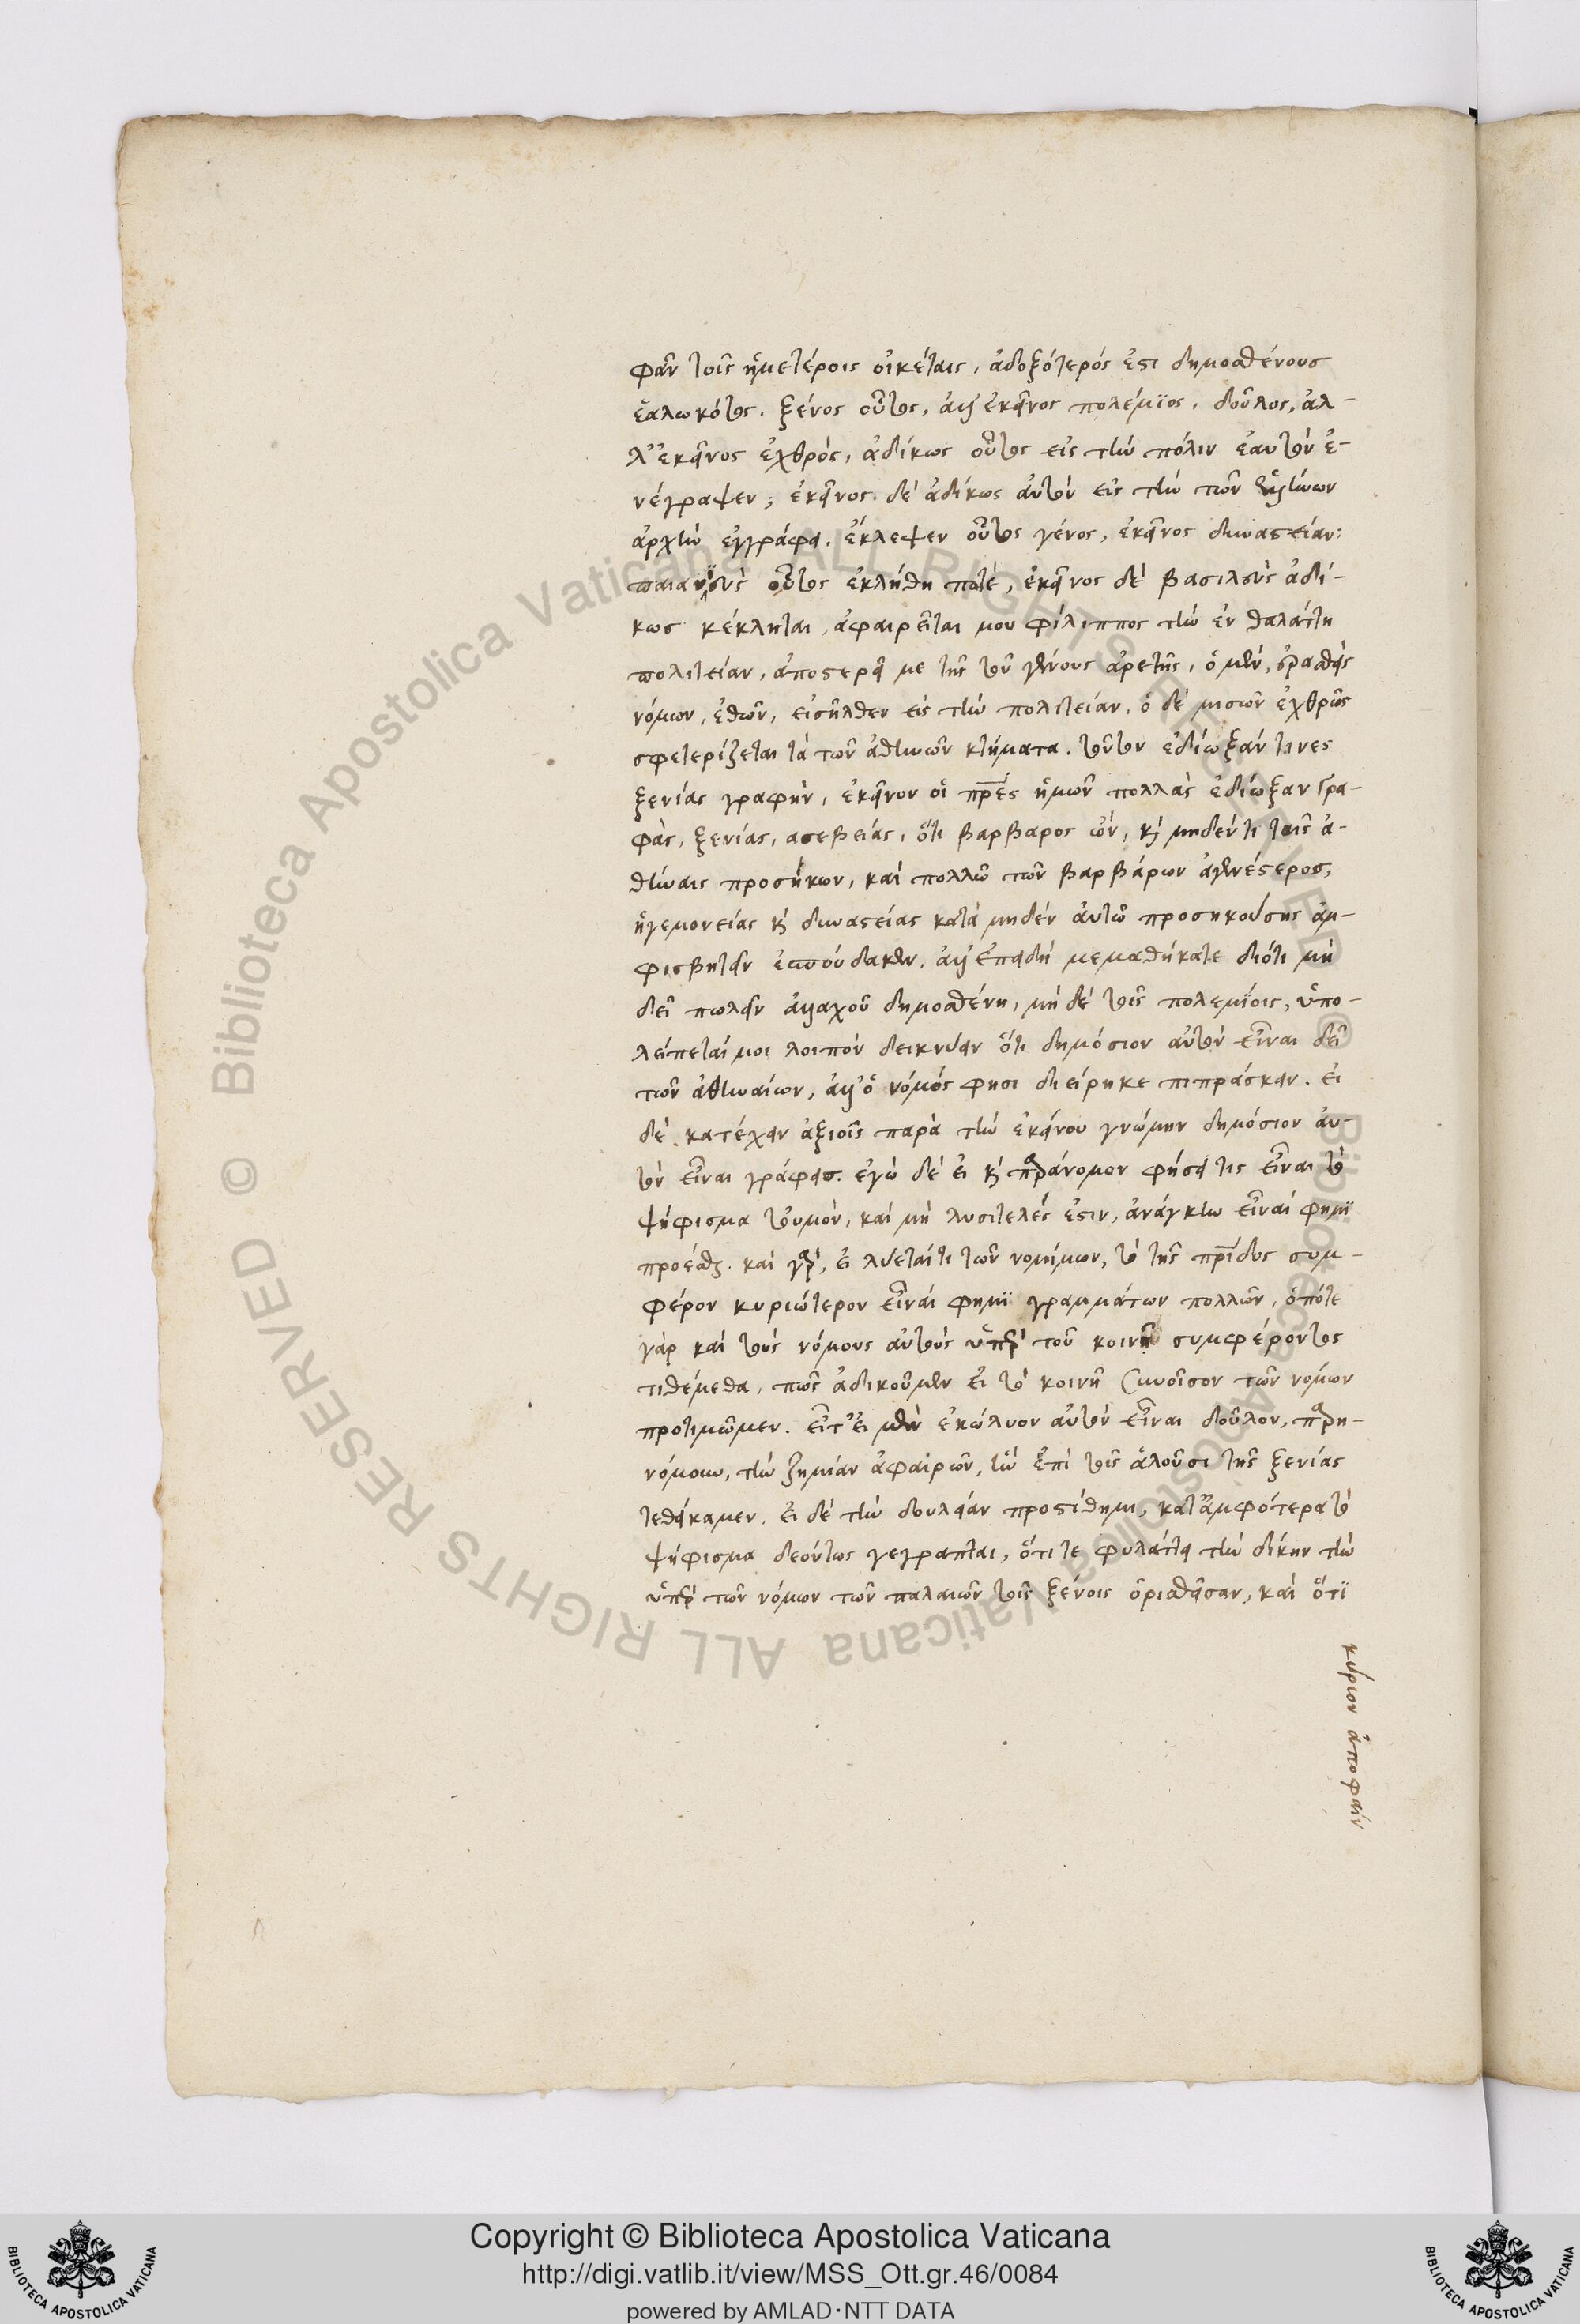 φᾶν τοῖς ἡμετέροις οἰκέταις, ἀδοξότερός ἐστι δημοσθένους
ἑαλωκότος. ξένος οὗτος, ἀλλ' ἐκεῖνος πολέμϊος. δοῦλος, ἀλ-
λ' ἐκεῖνος ἐχθρὸς, ἀδίκως οὗτος εἰς τὴν πόλιν ἑαυτὸν ἐ-
νέγραψεν; ἐκεῖνος δὲ ἀδίκως αὑτὸν εἰς τὴν τῶν ἑλλήνων
ἀρχὴν ἐγγράφει. ἔκλεψεν οὗτος γένος, ἐκεῖνος δυναστείαν:
παιανϊεὺς οὗτος ἐκλήθη ποτὲ, ἐκεῖνος δὲ βασιλεὺς ἀδί-
κως κέκληται, ἀφαιρεῖται μου φίλιππος τὴν ἐν θαλάττη
πολιτείαν, ἀποστερεῖ με τῆς τοῦ γένους ἀρετῆς, ὁ μὲν,
νόμων, ἐθῶν, εἰσῆλθεν εἰς τὴν πολιτείαν, ὁ δὲ μισῶν ἐχθρῶς
σφετερίζεται τὰ τῶν ἀθηνῶν κτήματα. τοῦτον ἐδίωξάν τινες
ξενίας γραφὴν, ἐκεῖνον οἱ πρ̅ες ἡμῶν πολλὰς ἐδίωξαν γρα-
φὰς, ξενίας, ασεβείας, ὅτι βαρβαρος ὢν, κ̀ μηδέν τι ταῖς ἀ-
θήναις προσήκων, καὶ πολλῶ τῶν βαρβάρων ἀγενέστερος,
ἡγεμονείας κ̀ δυναστείας κατὰ μηδὲν αὐτῶ προσηκούσης ἀμ-
φισβητεῖν ἐσπούδακεν. ἀλλ' ἐπειδὴ μεμαθήκατε διότι μὴ
δεῖ πωλεῖν ἀλλαχοῦ δημοσθένη, μὴ δὲ τοῖς πολεμίοις, ὑπο-
λείπεταί μοι λοιπὸν δεικνύειν ὅτι δημόσιον αὐτὸν εἶναι δεῖ
τῶν ἀθηναίων, ἀλλ' ὁ νόμός φησι διείρηκε πιπράσκειν. εἰ
δὲ κατέχειν ἀξιοῖς παρὰ τὴν ἐκείνου γνώμην δημόσιον αὐ-
τὸν εἶναι γράφεις. ἐγὼ δὲ εἰ κ̀ παράνομον φήσει τις εἶναι τὸ
ψήφισμα τοὐμὸν, καὶ μὴ λυσιτελές ἐστιν, ἀνάγκην εἶναί φημϊ
προέσθαι. καὶ γὰρ, εἰ λύεταί τι τῶν νομίμων, τὸ τῆς πρ̅ίδος συμ-
φέρον κυριώτερον εἶναί φημϊ γραμμάτων πολλῶν, ὁπότε
γὰρ καὶ τοὺς νόμους αὐτοὺς ὑπὲρ τοῦ κοινῆ συμφέροντος
τιθέμεθα, πῶς ἀδικοῦμεν εἰ τὸ κοινῆ συνοῖσον τῶν νόμων
προτιμῶμεν. εἶτ' εἰ μὲν ἐκώλυον αὐτὸν εἶναι δοῦλον, παρη-
νόμουν, τὴν ζημίαν ἀφαιρῶν, ἣν ἐπὶ τοῖς ἁλοῦσι τῆς ξενίας
τεθείκαμεν. εἰ δὲ τὴν δουλείαν προστίθημι, κατ' ἀμφότερα τὸ
ψήφισμα δεόντως γεγραπται, ὅτι τε φυλάττει τὴν δίκην τὴν
ὑπὲρ τῶν νόμων τῶν παλαιῶν τοῖς ξένοις ὁρισθεῖσαν, καὶ ὅτϊ
κύριον ἀποφαίν
Copyright © Biblioteca Apostolica Vaticana
http://digi.vatlib.it/view/MSS_Ott.gr.46/0084
powered by AMLAD·NTT DATA
BIBLIOTECA APOSTOLICA VATICANA
BIBLIOTECA APOSTOLICA VATICANA
© Biblioteca Apostolica Vaticana ALL RIGHTS RESERVED
© Biblioteca Apostolica Vaticana ALL RIGHTS RESERVED